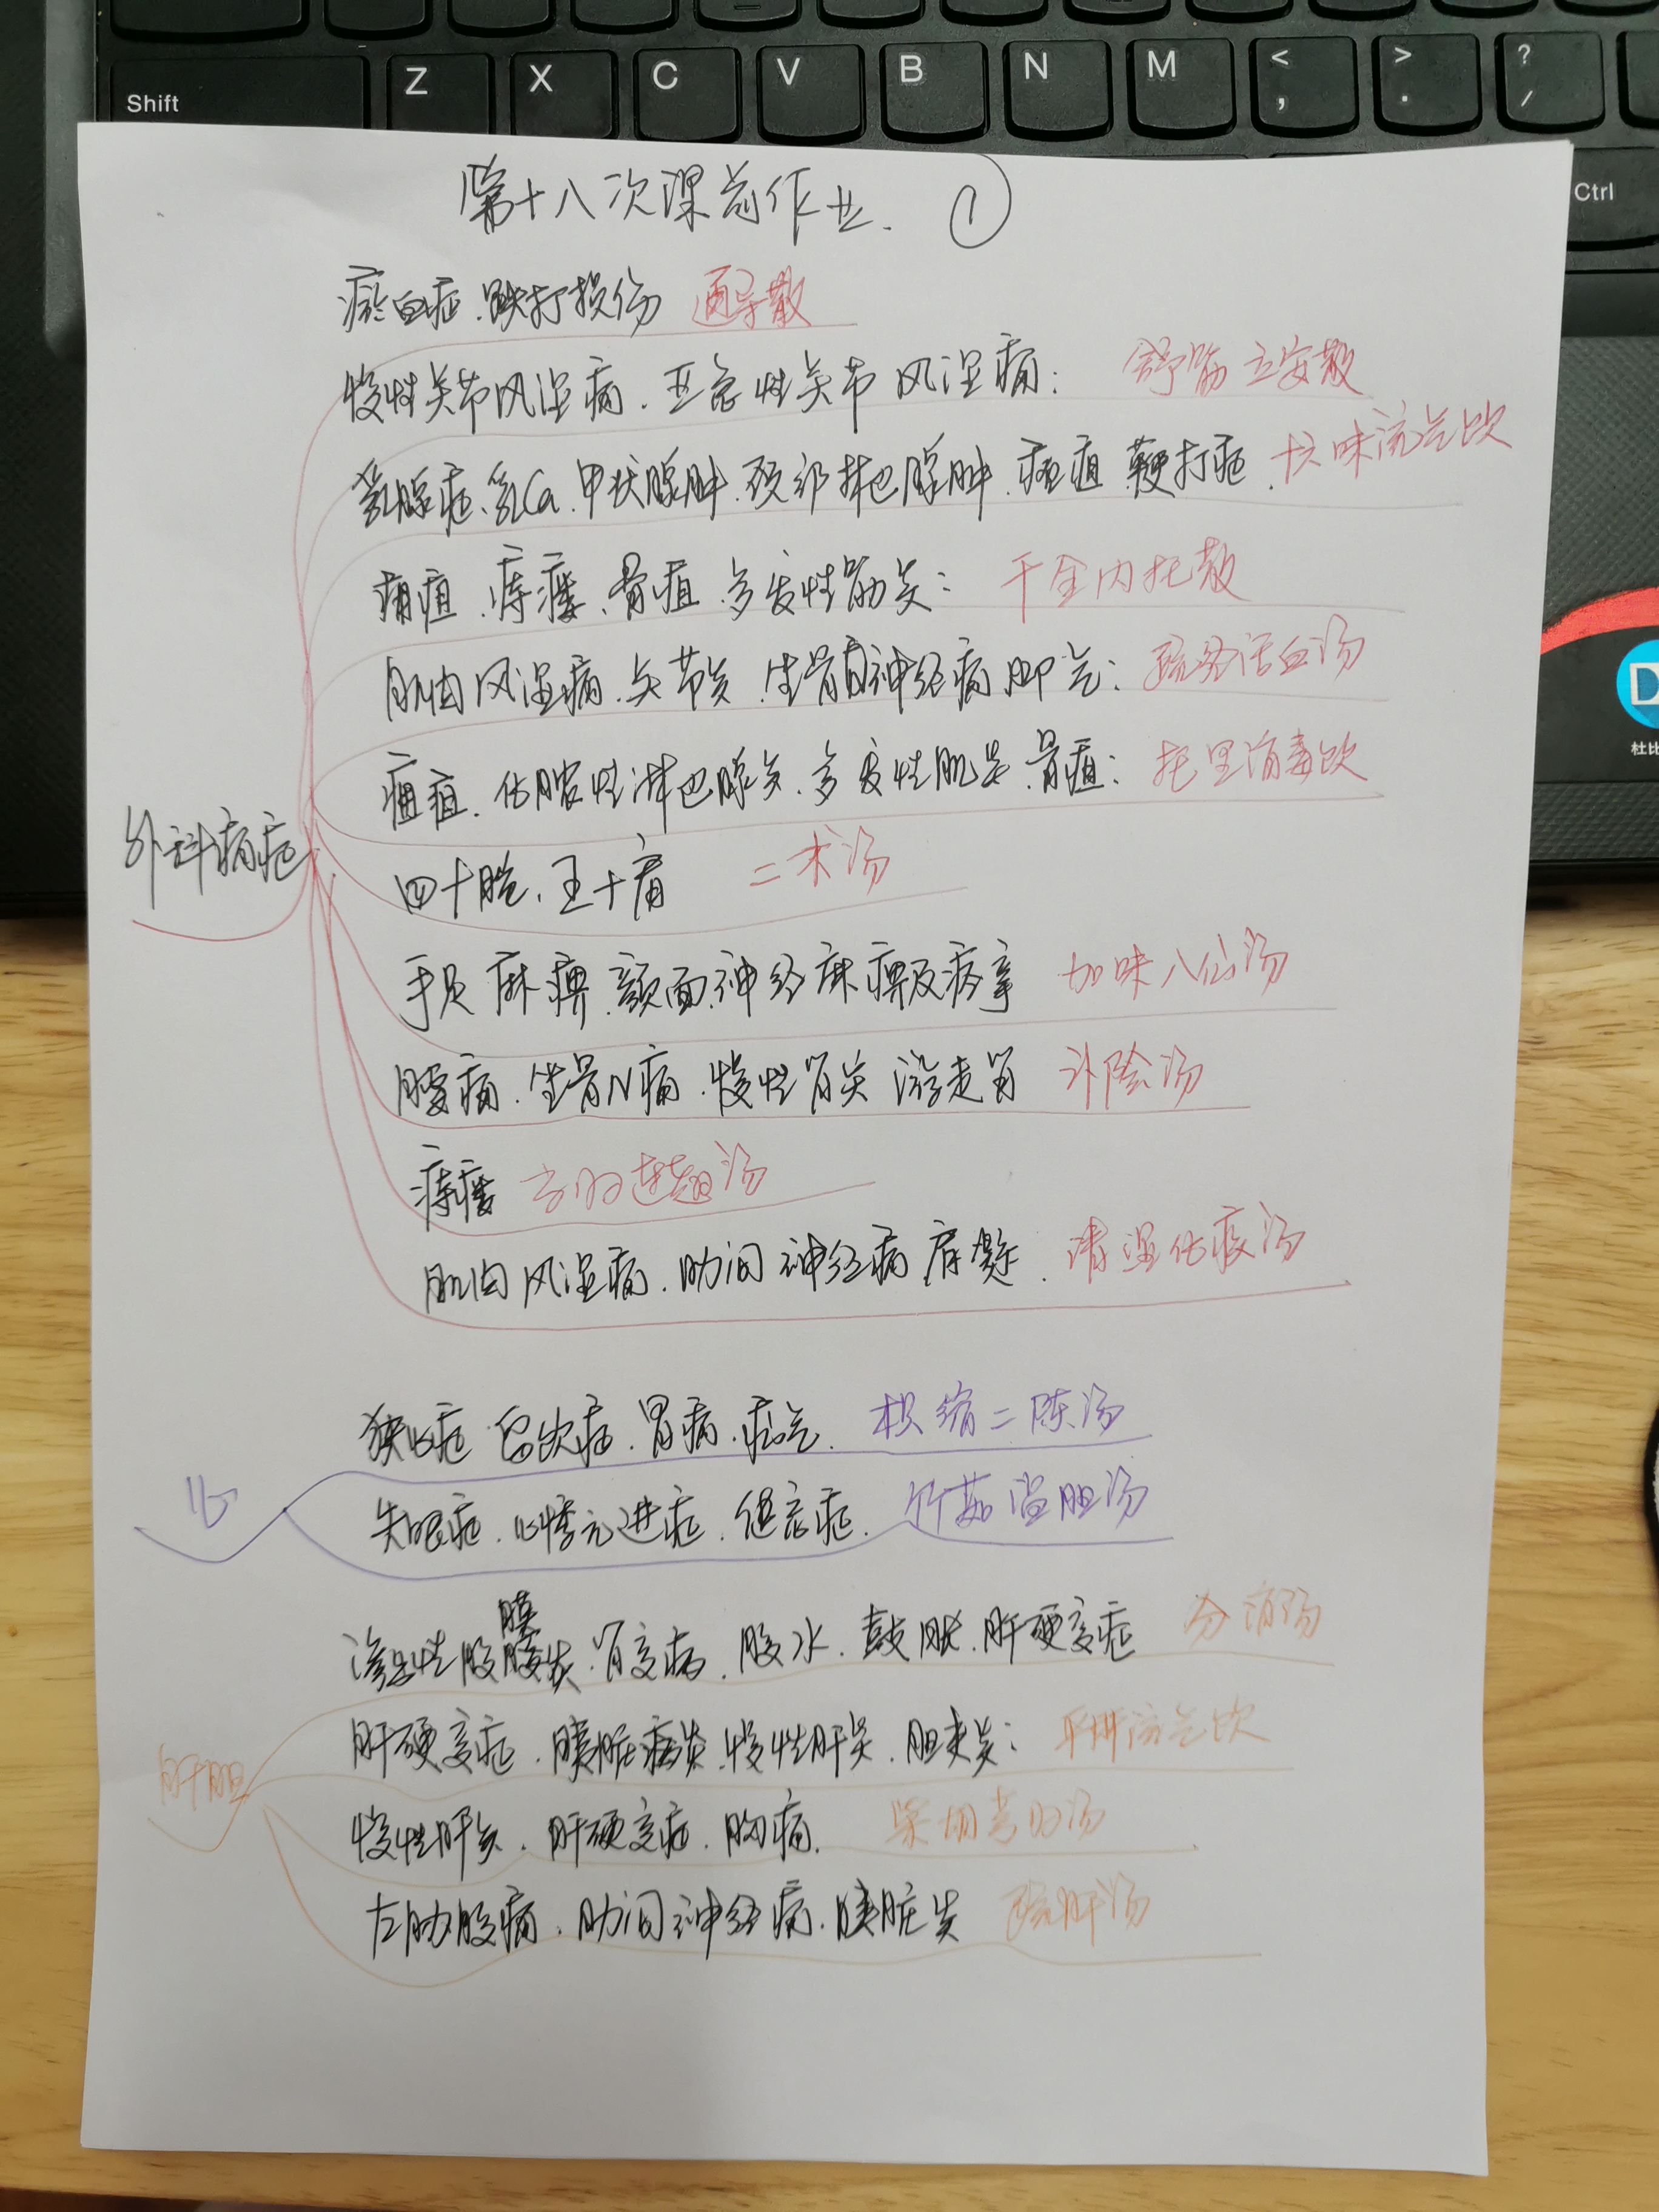 Shift Z X C V B N M < , > . ? /
Ctrl
第十八次课前作业. ①
瘀血症.跌打损伤 通导散
慢性关节风湿病.亚急性关节风湿病: 舒筋立安散
乳腺症、乳Ca.甲状腺肿.颈部淋巴腺肿.瘰疽 鞭打症.十六味流气饮
痈疽.痔瘘.骨疽.多发性筋炎: 千金内托散
肌肉风湿病.关节炎.坐骨神经病 脚气: 疏经活血汤
痈疽.化脓性淋巴腺炎.多发性肌炎.骨疽: 托里消毒饮
四十腕.五十肩 二术汤
手足麻痹.颜面神经麻痹及痉挛 加味八仙汤
腰痛.坐骨N痛.慢性肾炎 游走肾 补阴汤
外科病症
痔瘘 当归连翘汤
肌肉风湿病.肋间神经痛 肩凝.清湿化痰汤
狭心症 留饮症.胃病.疝气. 枳缩二陈汤
心
失眠症.心悸亢进症.健忘症. 竹茹温胆汤
膜
渗出性腹膜炎.肾变病.腹水.鼓胀.肝硬变症 分消汤
肝硬变症.胰脏病炎.慢性肝炎.胆囊炎: 平肝流气饮
肝胆
慢性肝炎.肝硬变症.胸痛. 柴胡芎归汤
左肋腹痛.肋间神经痛.胰脏炎 疏肝汤
杜比